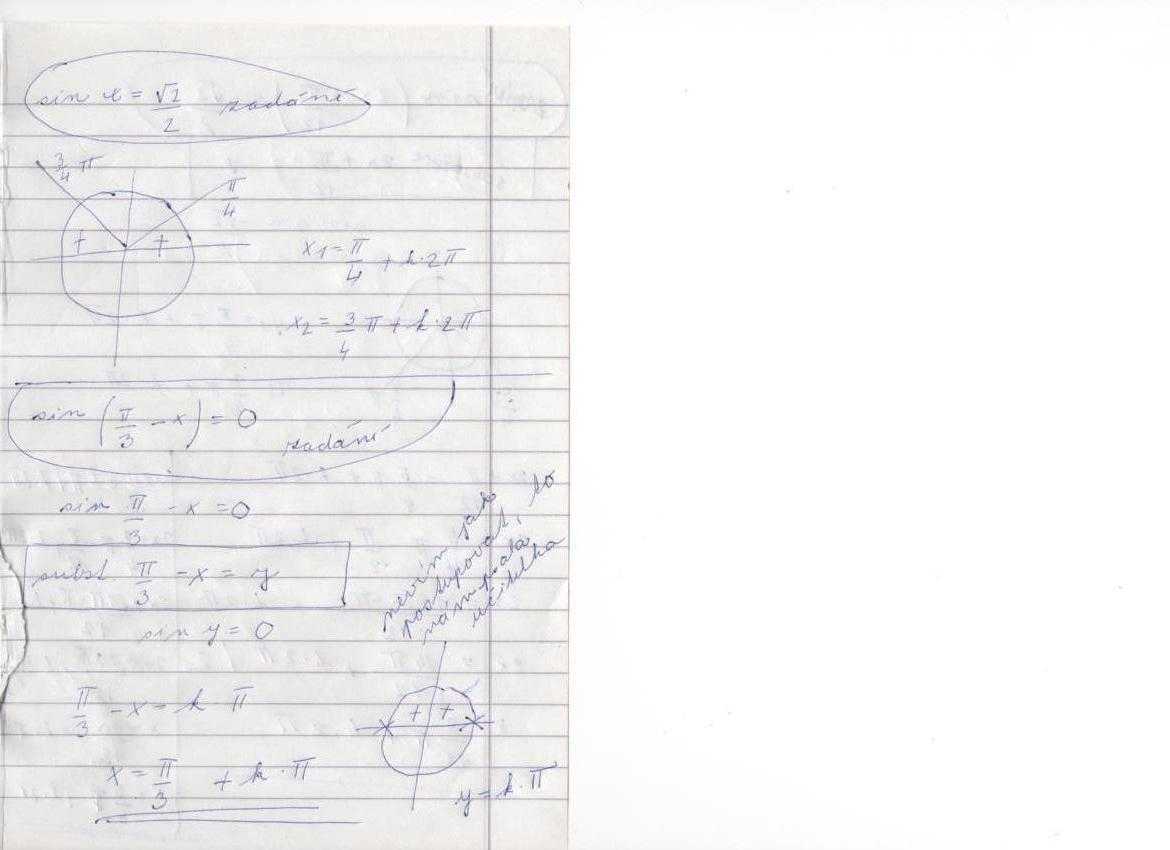 sin x = √2/2 zadání
3/4 π
π/4
+ +
x1 = π/4 + k·2π
x2 = 3/4 π + k·2π
sin (π/3 - x) = 0
zadání
sin π/3 - x = 0
subst. π/3 - x = y
sin y = 0
nevím jak
postupovat, to
nám psala
učitelka
π/3 - x = k·π
+ +
x = π/3 + k·π
y = k·π